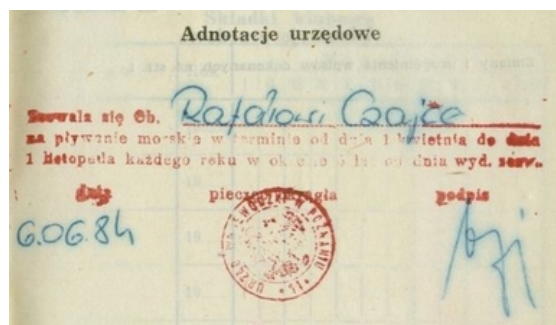 Adnotacje urzędowe
Zezwala się Ob. Rafałowi Czajce
na pływanie morskie w terminie od dnia 1 kwietnia do dnia
1 listopada każdego roku w okresie 5 lat od dnia wyd. zezw.
data pieczęć okrągła podpis
6.06.84
URZĄD WOJEWÓDZKI W POZNANIU